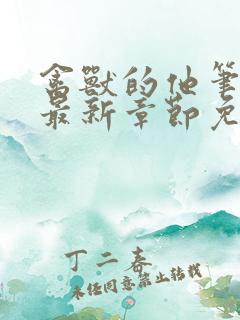 禽獸的他筆
最新章節免
丁二春
未经同意禁止转载